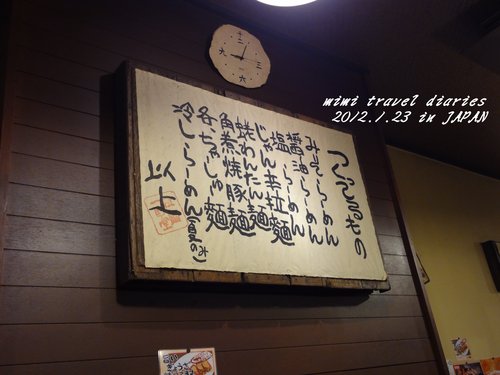 十二
三
六
九
mimi travel diaries
2012.1.23 in JAPAN
つくってるもの
みそらーめん
醤油らーめん
塩らーめん
じゃん辛拉麺
焼わんたん麺
角煮焼豚麺
各、ちゃーしゅー麺
冷しらーめん(夏のみ)
以上